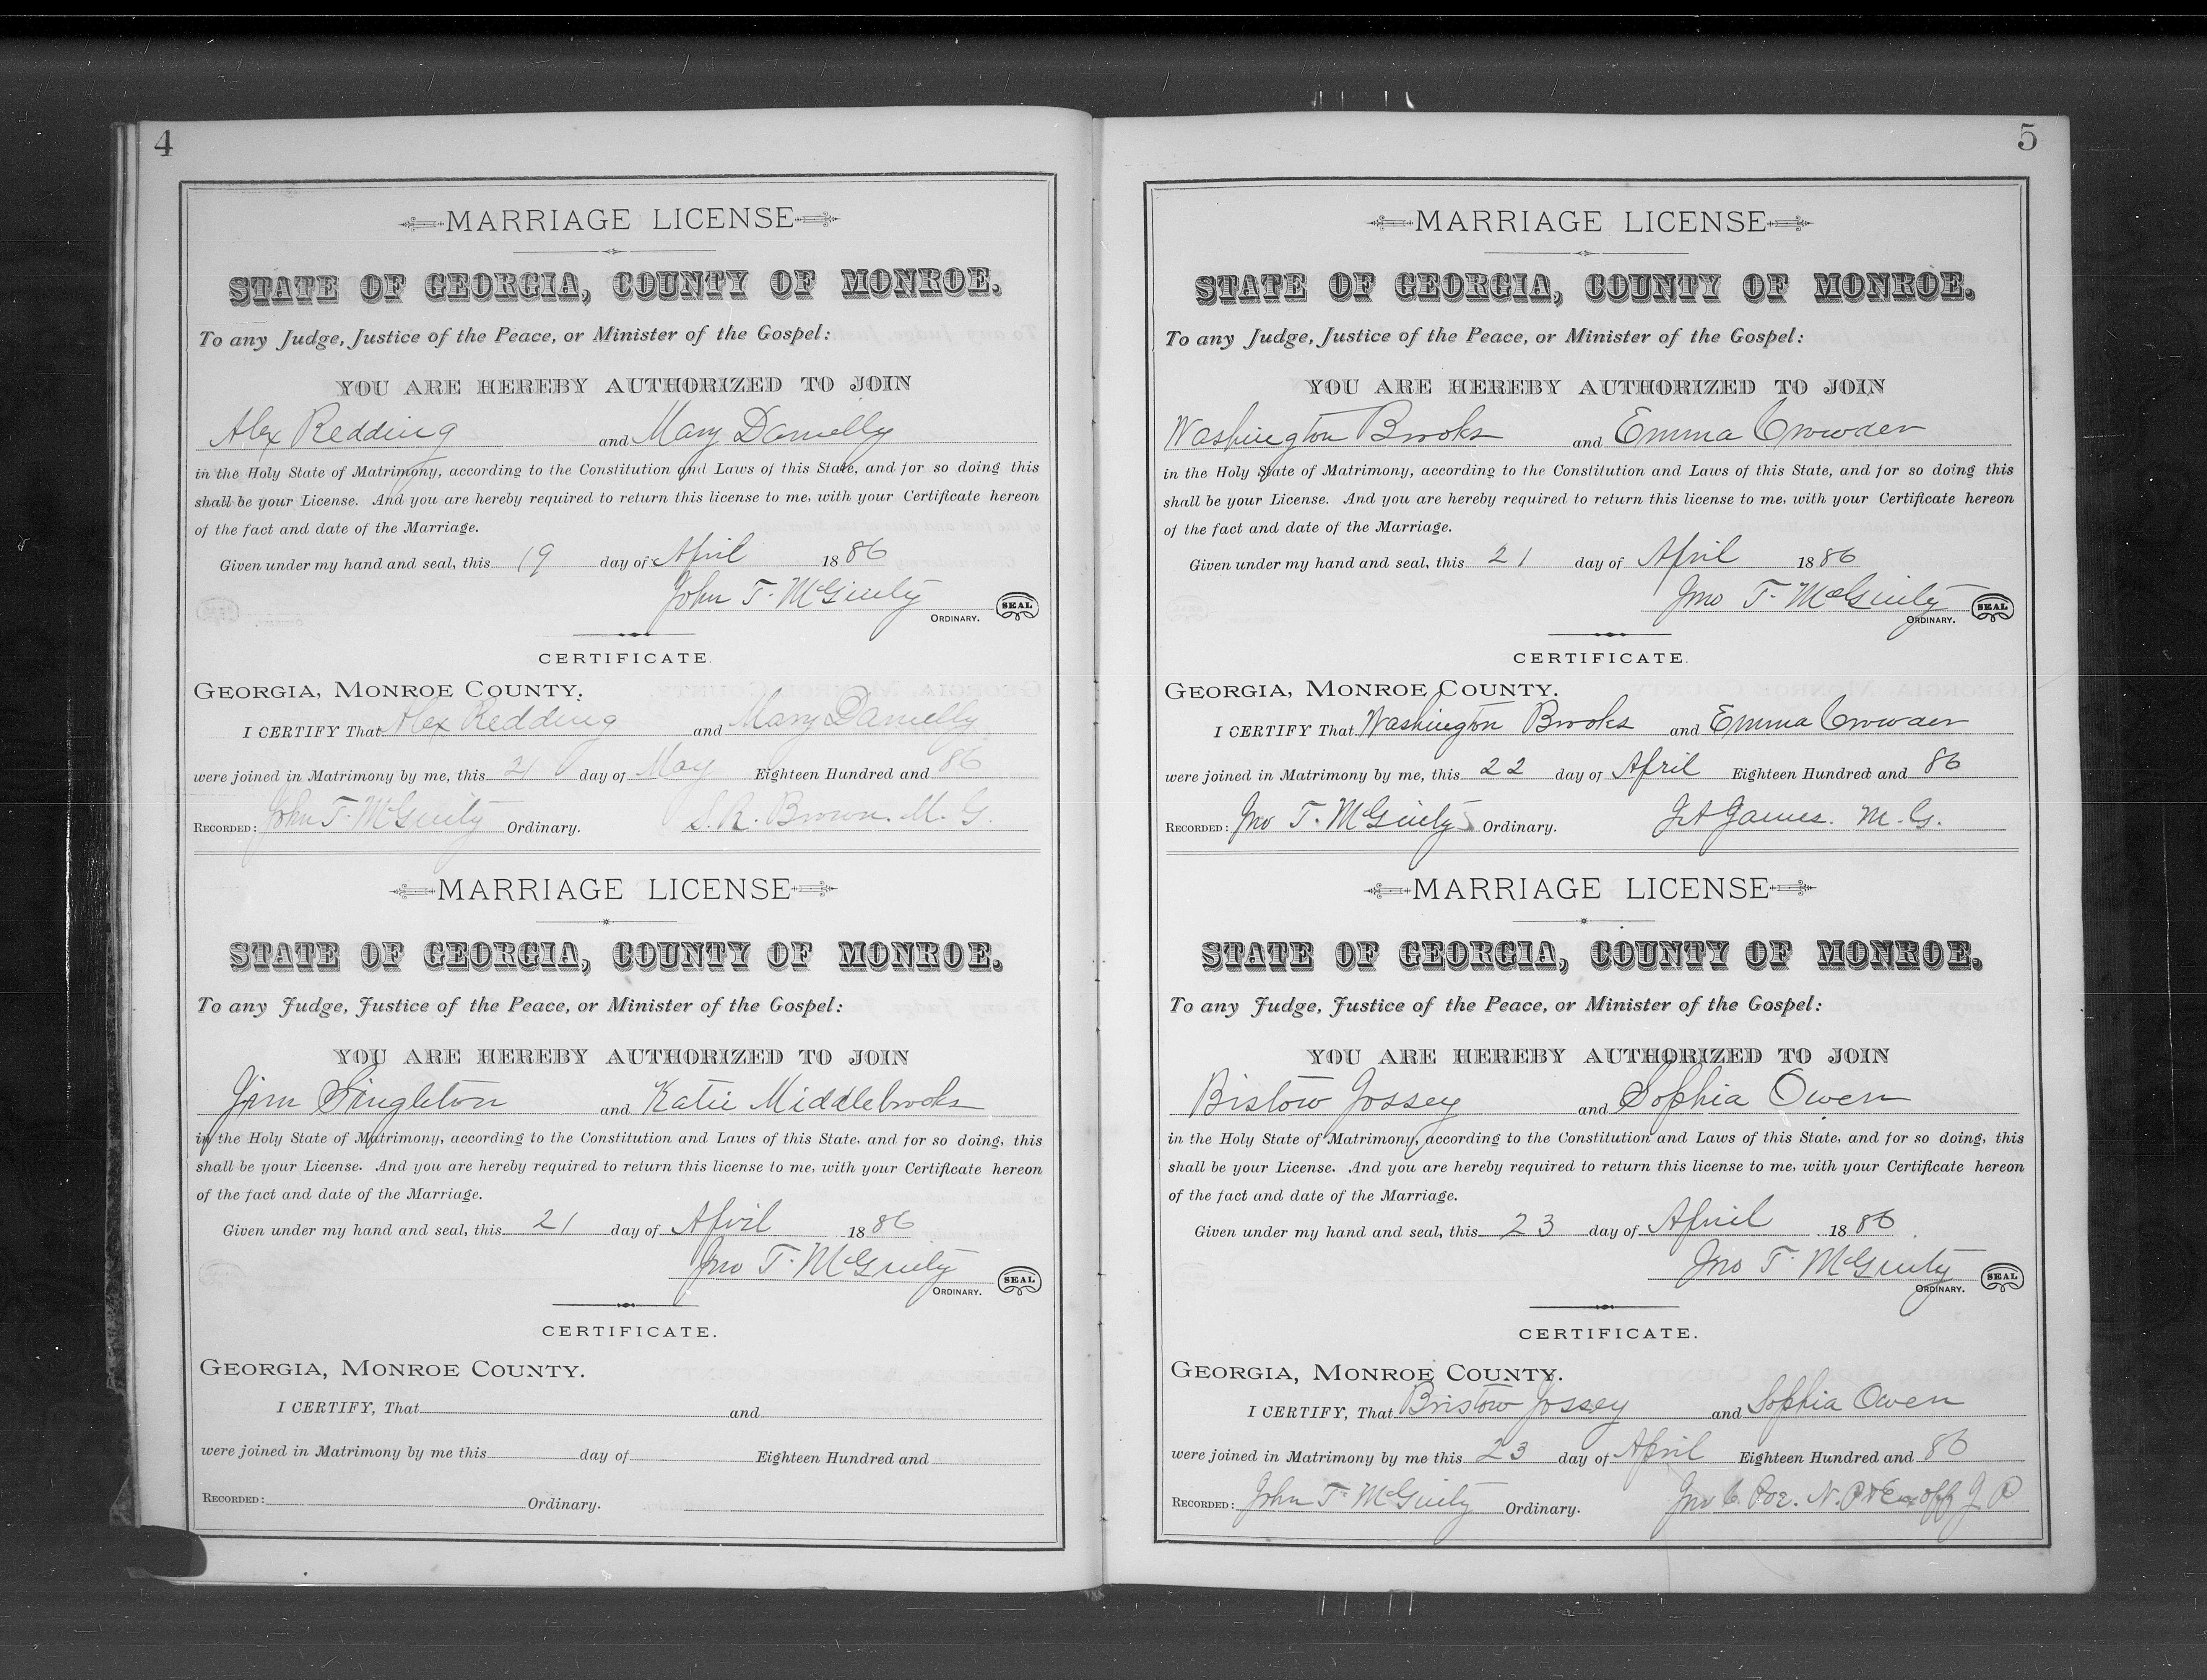 4
MARRIAGE LICENSE
STATE OF GEORGIA, COUNTY OF MONROE.
To any Judge, Justice of the Peace, or Minister of the Gospel:
YOU ARE HEREBY AUTHORIZED TO JOIN
Alex Redding and Mary Danielly
in the Holy State of Matrimony, according to the Constitution and Laws of this State, and for so doing this
shall be your License. And you are hereby required to return this license to me, with your Certificate hereon
of the fact and date of the Marriage.
Given under my hand and seal, this 19 day of April 1886
John T. McGinty SEAL
ORDINARY.
CERTIFICATE.
GEORGIA, MONROE COUNTY.
I CERTIFY That Alex Redding and Mary Danielly
were joined in Matrimony by me, this 21 day of May Eighteen Hundred and 86
RECORDED: John T. McGinty Ordinary. S. R. Brown. M. G.
MARRIAGE LICENSE
STATE OF GEORGIA, COUNTY OF MONROE.
To any Judge, Justice of the Peace, or Minister of the Gospel:
YOU ARE HEREBY AUTHORIZED TO JOIN
Jim Singleton and Katie Middlebrooks
in the Holy State of Matrimony, according to the Constitution and Laws of this State, and for so doing, this
shall be your License. And you are hereby required to return this license to me, with your Certificate hereon
of the fact and date of the Marriage.
Given under my hand and seal, this 21 day of April 1886
Jno T. McGinty SEAL
ORDINARY.
CERTIFICATE.
GEORGIA, MONROE COUNTY.
I CERTIFY, That and
were joined in Matrimony by me this day of Eighteen Hundred and
RECORDED: Ordinary.
5
MARRIAGE LICENSE
STATE OF GEORGIA, COUNTY OF MONROE.
To any Judge, Justice of the Peace, or Minister of the Gospel:
YOU ARE HEREBY AUTHORIZED TO JOIN
Washington Brooks and Emma Crowder
in the Holy State of Matrimony, according to the Constitution and Laws of this State, and for so doing this
shall be your License. And you are hereby required to return this license to me, with your Certificate hereon
of the fact and date of the Marriage.
Given under my hand and seal, this 21 day of April 1886
Jno T. McGinty SEAL
ORDINARY.
CERTIFICATE.
GEORGIA, MONROE COUNTY.
I CERTIFY That Washington Brooks and Emma Crowder
were joined in Matrimony by me, this 22 day of April Eighteen Hundred and 86
RECORDED: Jno T. McGinty Ordinary. James. M. G.
MARRIAGE LICENSE
STATE OF GEORGIA, COUNTY OF MONROE.
To any Judge, Justice of the Peace, or Minister of the Gospel:
YOU ARE HEREBY AUTHORIZED TO JOIN
Bistow Jossey and Sophia Owen
in the Holy State of Matrimony, according to the Constitution and Laws of this State, and for so doing, this
shall be your License. And you are hereby required to return this license to me, with your Certificate hereon
of the fact and date of the Marriage.
Given under my hand and seal, this 23 day of April 1886
Jno T. McGinty SEAL
ORDINARY.
CERTIFICATE.
GEORGIA, MONROE COUNTY.
I CERTIFY, That Bristow Jossey and Sophia Owen
were joined in Matrimony by me this 23 day of April Eighteen Hundred and 86
RECORDED: John T. McGinty Ordinary. Jno C. Poe. N. P. & Ex off J P